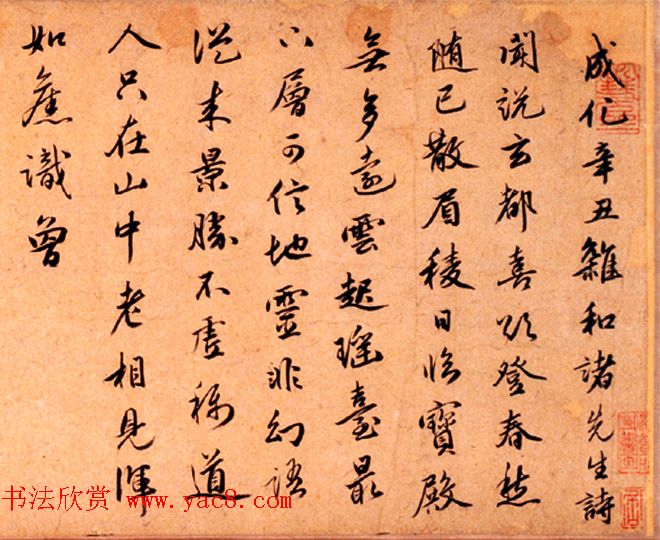 成化辛丑雜和諸先生詩
聞說玄都喜欲登春愁
随已散眉稜日臨寶殿
無多遠雲起瑶臺最
下層可信地靈非幻語
從来景勝不虛称道
人只在山中老相見渾
如舊識曾
书法欣赏 www.yac8.com